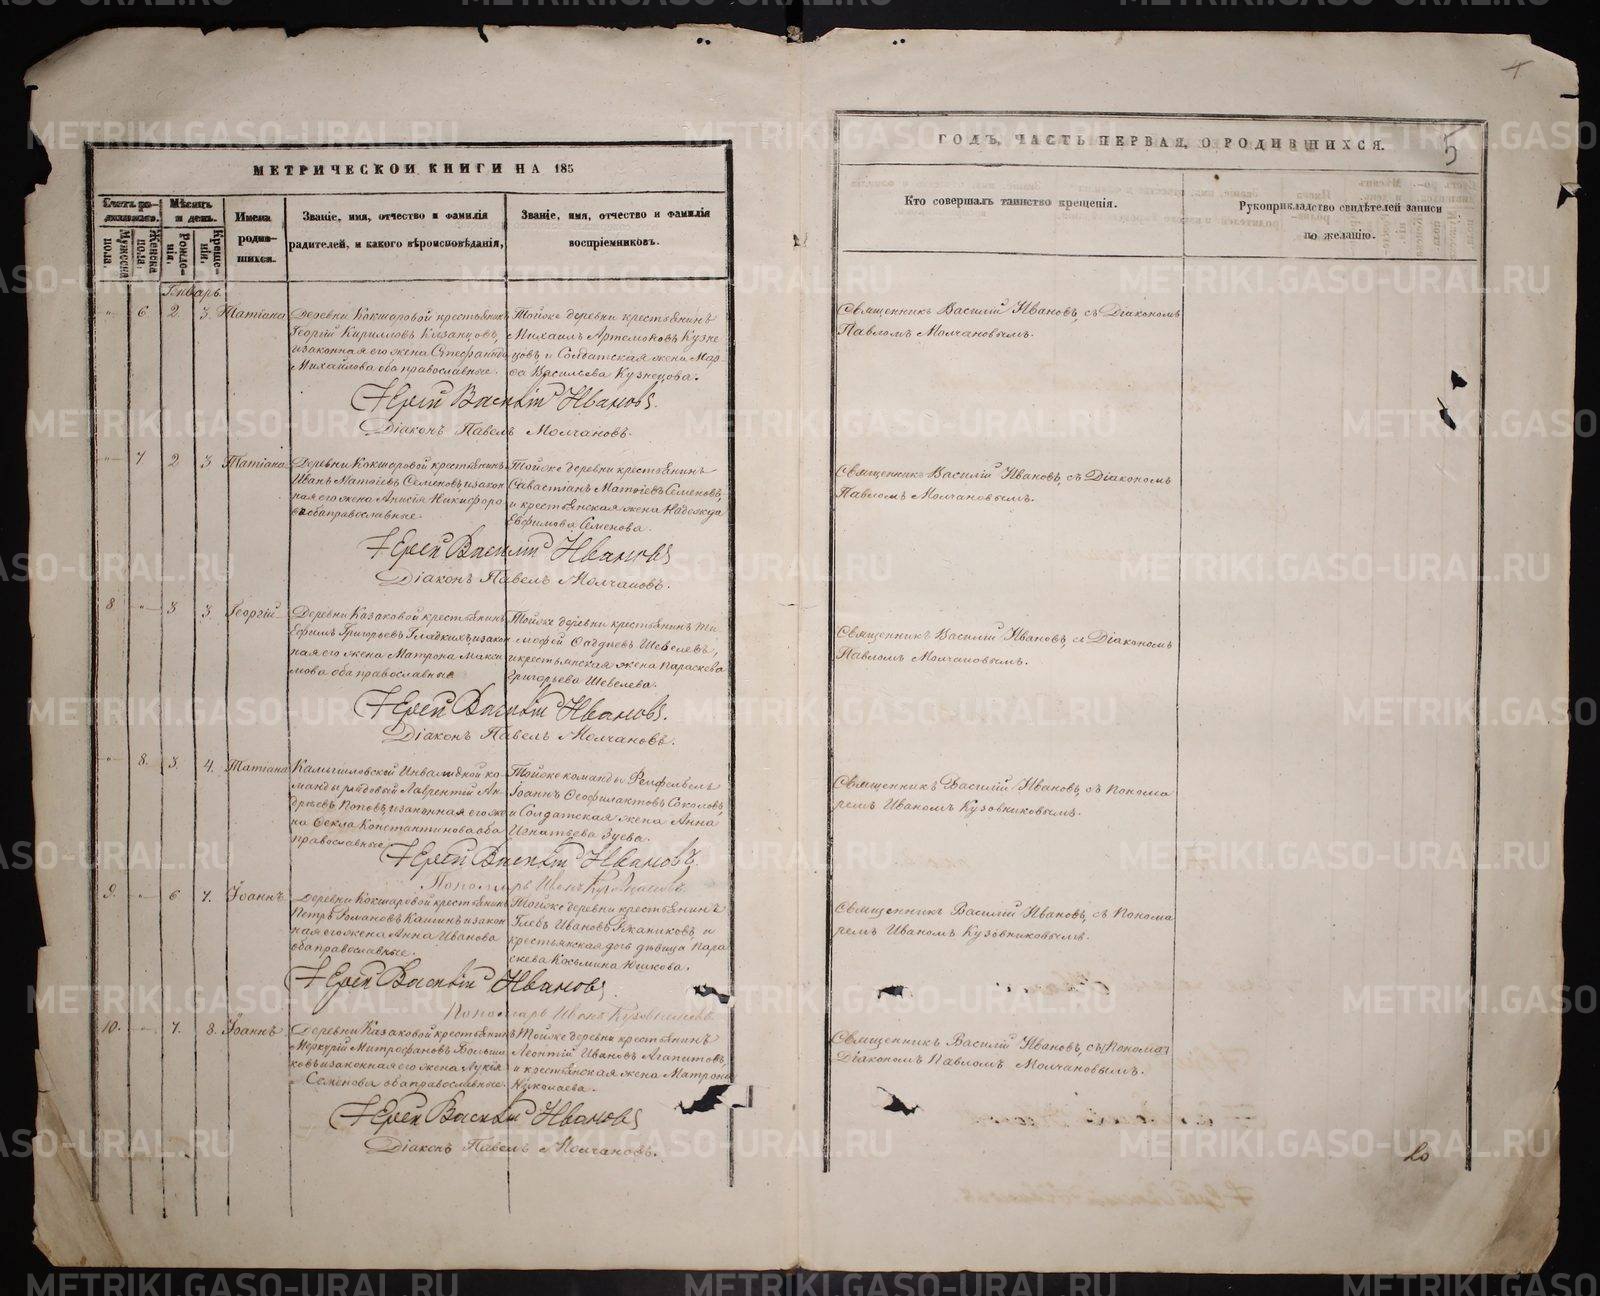 МЕТРИЧЕСКОЙ КНИГИ НА 185
Счетъ родившихся.
Мужеска пола.
Женска пола.
Мѣсяцъ и день.
Рожденія.
Крещенія.
Имена родившихся.
Званіе, имя, отчество и фамилія
родителей, и какого вѣроисповѣданія,
Званіе, имя, отчество и фамилія
воспріемниковъ.
Генварь
6 2 3 Татіана
Деревни Кокшаровой крестьянинъ
Георгій Кирилловъ Казанцовъ,
и законная его жена Стефанида
Михайлова оба православные.
Тойже деревни крестьянинъ
Михаилъ Артемоновъ Кузне
цовъ и Солдатская жена Мар
ѳа Васильева Кузнецова.
Іерей Василій Ивановъ.
Діаконъ Павелъ Молчановъ.
7 2 3 Татіана
Деревни Кокшаровой крестьянинъ
Иванъ Матѳіевъ Семеновъ и закон
ная его жена Анисія Никифоро
ва оба православные.
Тойже деревни крестьянинъ
Савастіанъ Матѳіевъ Семеновъ,
и крестьянская жена Надежда
Евфимова Семенова.
Іерей Василій Ивановъ
Діаконъ Павелъ Молчановъ.
8 3 3 Георгій
Деревни Казаковой крестьянинъ
Ефимъ Григорьевъ Гладкихъ и закон
ная его жена Матрона Макси
мова оба православные
Тойже деревни крестьянинъ Ти
моѳей Ѳаддѣевъ Шевелевъ,
и крестьянская жена Параскева
Григорьева Шевелева.
Іерей Василій Ивановъ.
Діаконъ Павелъ Молчановъ.
8. 3. 4. Татіана
Камышловской Инвалидной ко
манды рядовый Лаврентій Ан
дреевъ Поповъ, и законная его же
на Ѳекла Константинова оба
православные
Тойже команды Фельдфебель
Іоаннъ Ѳеофилактовъ Соколовъ,
и Солдатская жена Анна
Игнатьева Зуева.
Іерей Василій Ивановъ
Пономарь Иванъ Кузовниковъ.
9. 6 7. Іоаннъ
Деревни Кокшаровой крестьянинъ
Петръ Романовъ Кашинъ и закон
ная его жена Анна Иванова
оба православные.
Тойже деревни крестьянинъ
Глебъ Ивановъ Ржаниковъ, и
крестьянская дочь дѣвица Пара
скева Козьмина Юшкова.
Іерей Василій Ивановъ
Пономарь Иванъ Кузовниковъ
10. 7. 8. Іоаннъ
Деревни Казаковой крестьянинъ
Меркурій Митрофановъ Больша
ковъ и законная его жена Лукія
Семенова оба православные.
Тойже деревни крестьянинъ
Леонтій Ивановъ Агапитовъ,
и крестьянская жена Матрона
Николаева.
Іерей Василій Ивановъ
Діаконъ Павелъ Молчановъ.
ГОДЪ, ЧАСТЬ ПЕРВАЯ, О РОДИВШИХСЯ.
5
Кто совершалъ таинство крещенія.
Рукоприкладство свидѣтелей записи
по желанію.
Священникъ Василій Ивановъ, съ Діакономъ
Павломъ Молчановымъ.
Священникъ Василій Ивановъ, съ Діакономъ
Павломъ Молчановымъ.
Священникъ Василій Ивановъ, съ Діакономъ
Павломъ Молчановымъ.
Священникъ Василій Ивановъ, съ Понома
ремъ Иваномъ Кузовниковымъ.
Священникъ Василій Ивановъ, съ Понома
ремъ Иваномъ Кузовниковымъ.
Священникъ Василій Ивановъ, съ (Понома)
Діакономъ Павломъ Молчановымъ.
METRIKI.GASO-URAL.RU